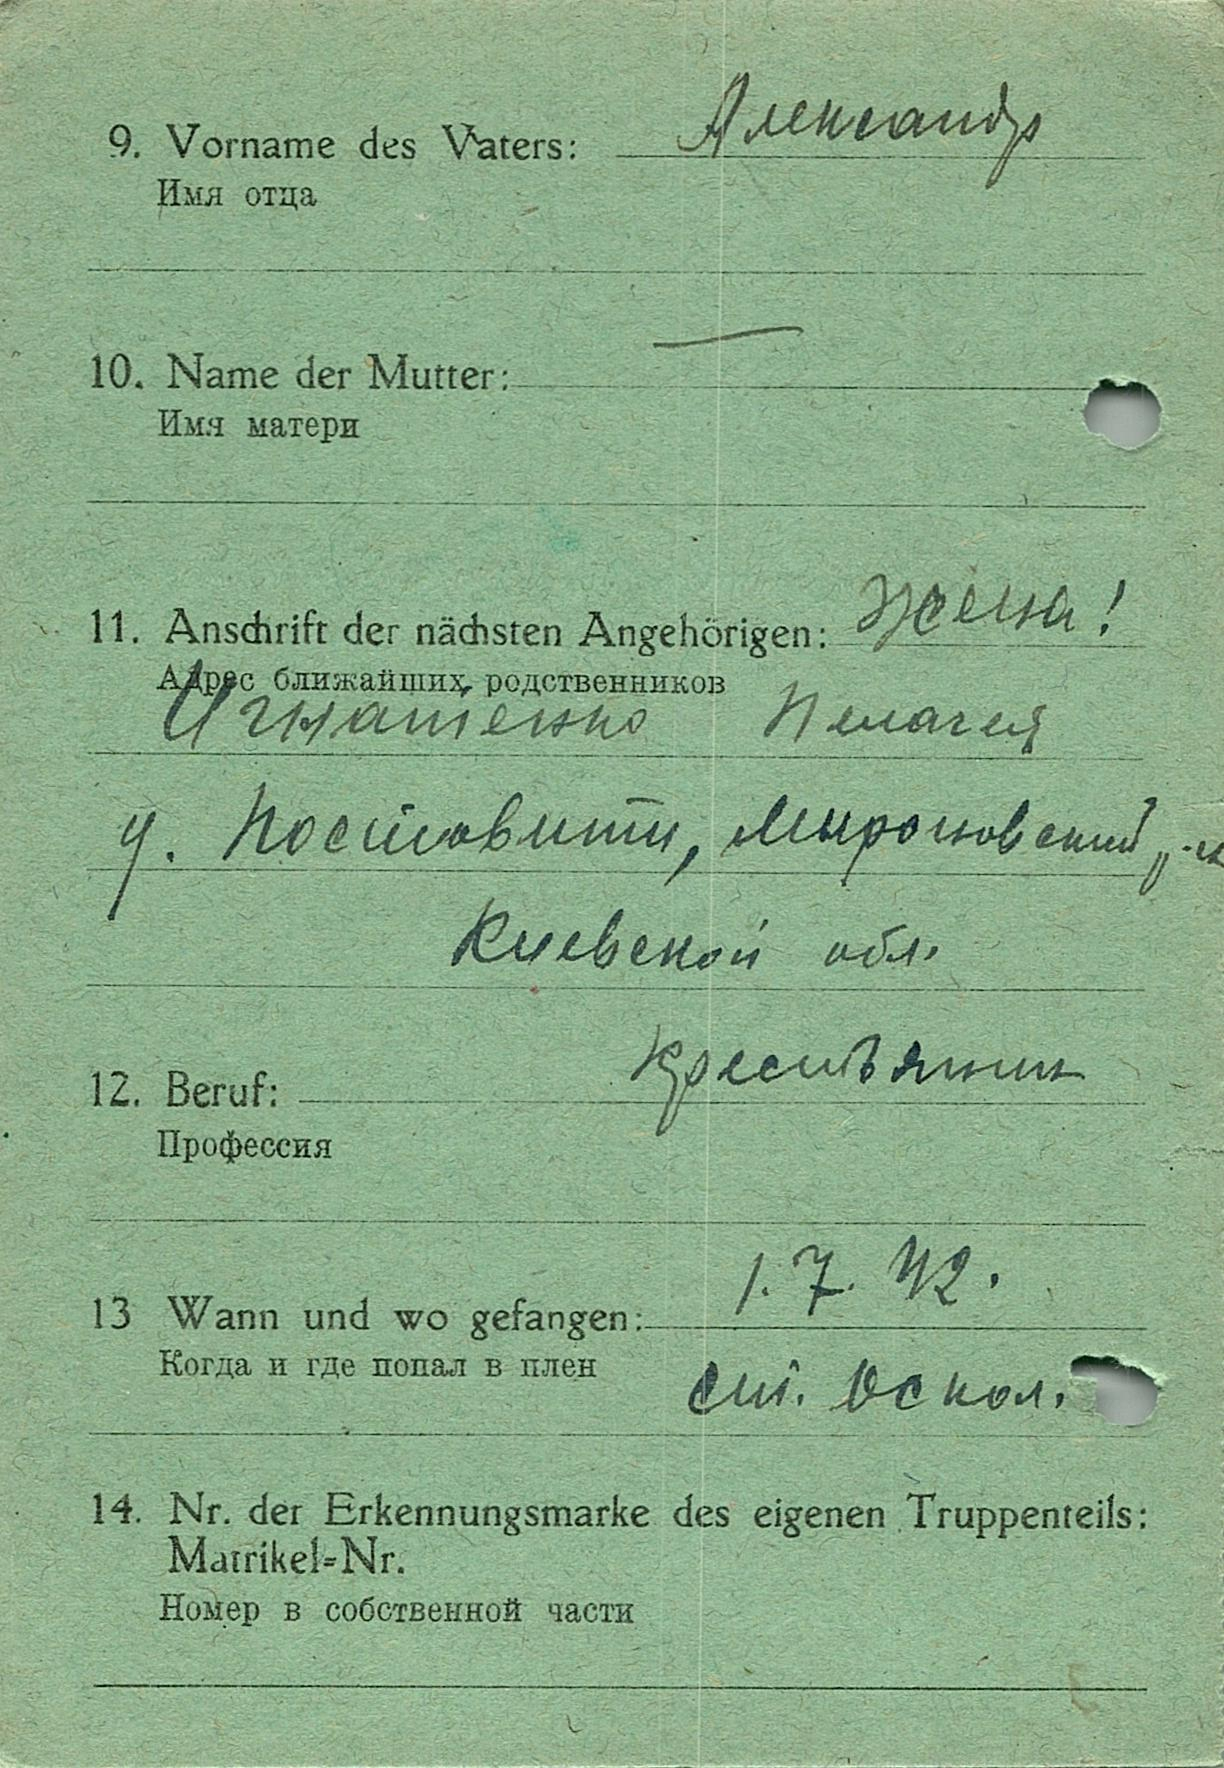 9. Vorname des Vaters: Александр
Имя отца
10. Name der Mutter: —
Имя матери
11. Anschrift der nächsten Angehörigen: Жена!
Адрес ближайших родственников
Игнатенко Пелагея
д. Поставмити, Мироновский
Киевской обл.
12. Beruf: Крестьянин
Профессия
13 Wann und wo gefangen: 1. 7. 42.
Когда и где попал в плен
ст. Оскол.
14. Nr. der Erkennungsmarke des eigenen Truppenteils:
Matrikel=Nr.
Номер в собственной части